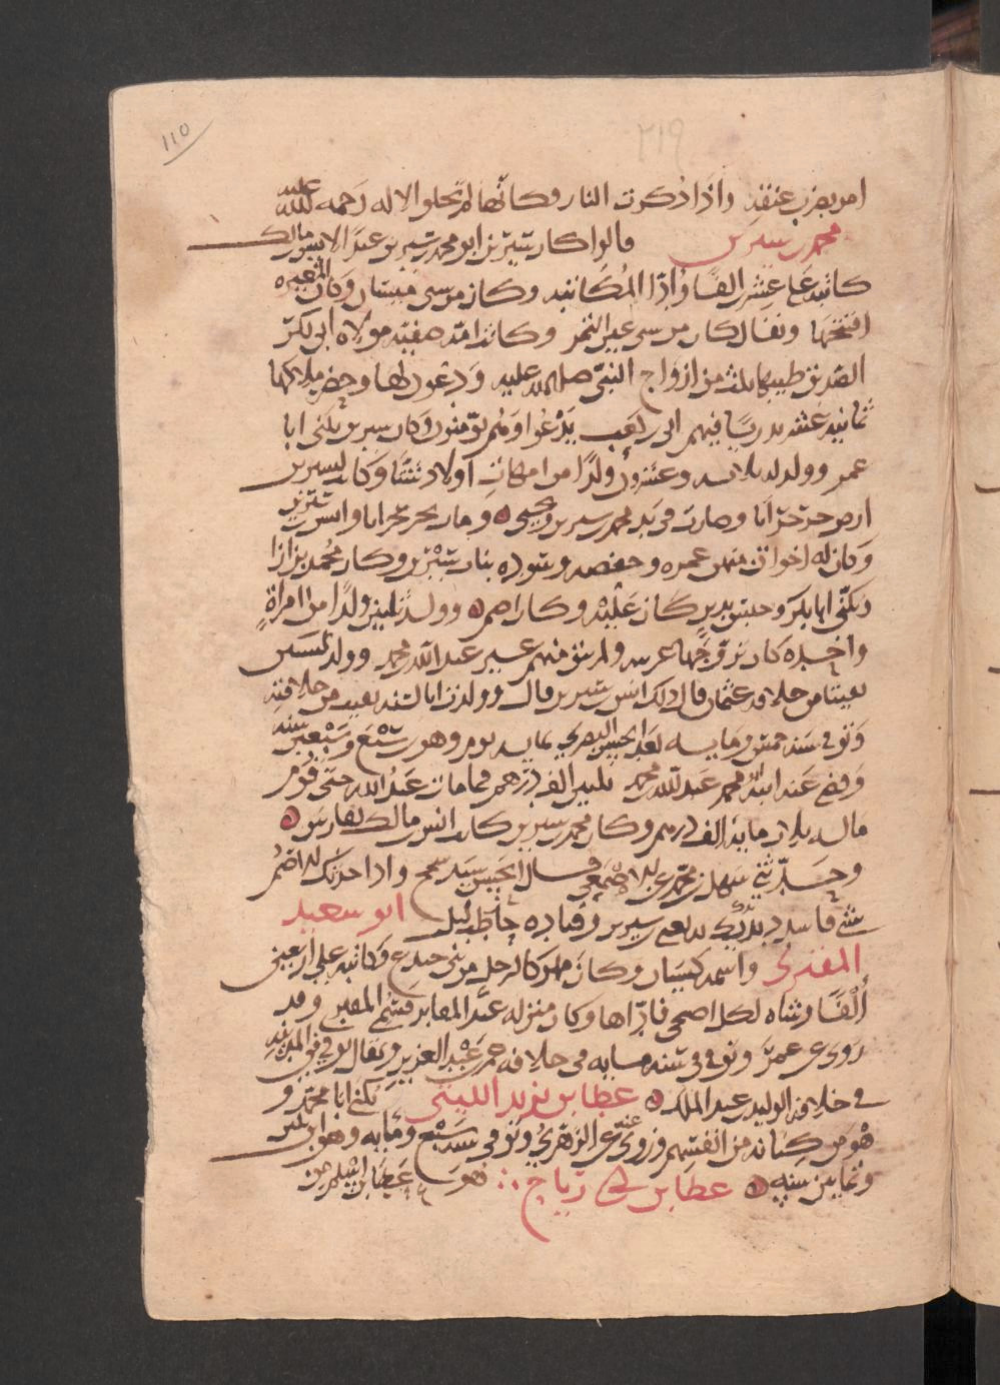 ١١٥
٢١٩
امر بضرب عنقه واذا ذكرت النار فكانها لم تخلق الا له رحمه الله عليه
محمد بن سيرين قالوا كان سيرين ابو محمد بن سيرين عبدا لانس بن مالك
كاتبه على عشرين الفا وادا المكاتبه وكان من سبى ميسان وكان المغيره
افتتحها ويقال كان من سبى عين التمر وكانت امه صفيه مولاه ابى بكر
الصديق طيبها ثلث من ازواج النبي صلى الله عليه ودعون لها وحضر ملاكها
ثمانيه عشر بدريا فيهم ابي بن كعب يدعوا وهم يؤمنون وكان سيرين يكنى ابا
عمره وولد له ثلاثه وعشرون ولدا من امهات اولاد شتى وكان لسيرين
ارض بجرجرايا وصارت في يد محمد بن سيرين ويحيى ومات يحيى بجرجرايا وانس بن سيرين
وكان له اخوات منهن عمره وحفصه وسوده بنات سيرين وكان محمد بزازا
ويكنى ابا بكر وحبس بدين كان عليه وكان اصم وولد له ثلثين ولدا من امراه
واحده كان تزوجها عربيه ولم يبق منهم غير عبد الله بن محمد وولد لسنتين
بقيتا من خلافه عثمان قال ذلك انس بن سيرين قال وولدت انا لسنه بقيت من خلافته
وتوفي سنه عشر ومايه بعد الحسن البصري بمايه يوم وهو ابن سبع وسبعين سنه
وقضى عنه ابنه عبد الله بن محمد ثلثين الف درهم فما مات عبد الله حتى قوم
ماله بثلاث مايه الف درهم وكان محمد بن سيرين كاتب انس بن مالك بفارس
وحدثني سهل بن محمد عن الاصمعي قال الحسن سيد سمح واذا حدثك الاصم
بشي فاشدد يديك به يعني بن سيرين وقتاده حاطب ليل ابو سعيد
المقبري واسمه كيسان وكان مملوكا لرجل من بني جندع وكاتبه على اربعين
الفا وشاه لكل اضحى فاداها وكان منزله عند المقابر فسمي المقبري وقد
روى عن عمر وتوفي في سنه مايه في خلافه عمر بن عبد العزيز ويقال توفي في المدينه
في خلافه الوليد بن عبد الملك عطا بن يزيد الليثي يكنى ابا محمد و
هو من كنانه من انفسهم وروى عنه الزهري وتوفي سنه سبع ومايه وهو ابن اثنين
وثمانين سنه عطا بن ابي رباح هو عطا بن اسلم من